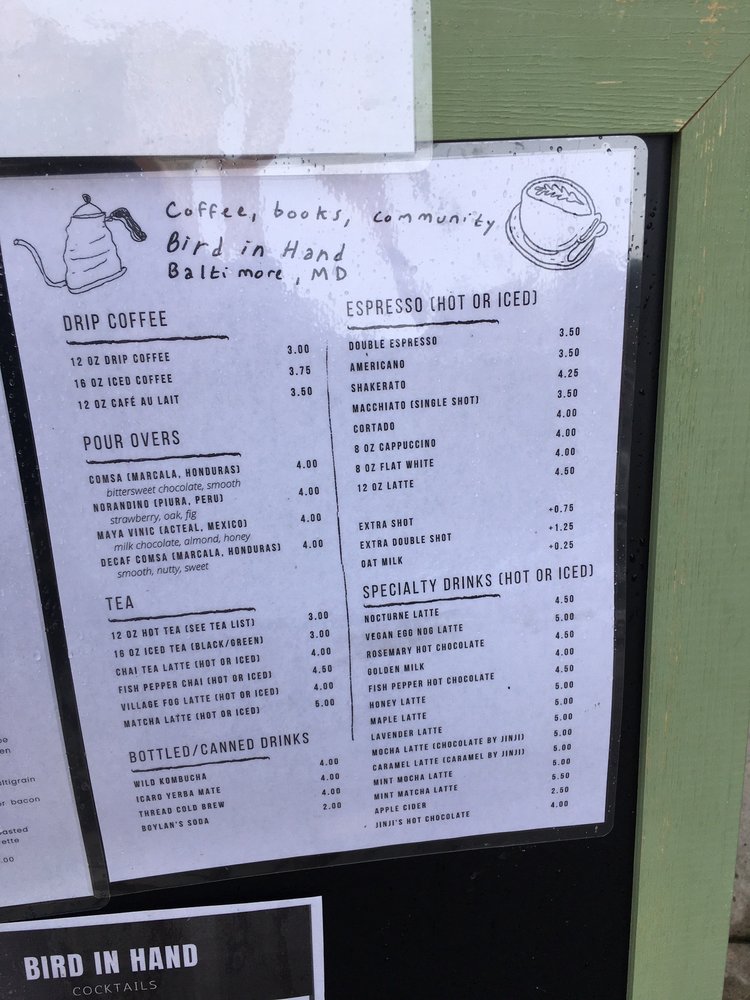 Coffee, books, community
Bird in Hand
Baltimore, MD
DRIP COFFEE
12 OZ DRIP COFFEE 3.00
16 OZ ICED COFFEE 3.75
12 OZ CAFÉ AU LAIT 3.50
POUR OVERS
COMSA (MARCALA, HONDURAS) 4.00
bittersweet chocolate, smooth
NORANDINO (PIURA, PERU) 4.00
strawberry, oak, fig
MAYA VINIC (ACTEAL, MEXICO) 4.00
milk chocolate, almond, honey
DECAF COMSA (MARCALA, HONDURAS) 4.00
smooth, nutty, sweet
TEA
12 OZ HOT TEA (SEE TEA LIST) 3.00
16 OZ ICED TEA (BLACK/GREEN) 3.00
CHAI TEA LATTE (HOT OR ICED) 4.00
FISH PEPPER CHAI (HOT OR ICED) 4.50
VILLAGE FOG LATTE (HOT OR ICED) 4.00
MATCHA LATTE (HOT OR ICED) 5.00
BOTTLED/CANNED DRINKS
WILD KOMBUCHA 4.00
ICARO YERBA MATE 4.00
THREAD COLD BREW 4.00
BOYLAN'S SODA 2.00
ESPRESSO (HOT OR ICED)
DOUBLE ESPRESSO 3.50
AMERICANO 3.50
SHAKERATO 4.25
MACCHIATO (SINGLE SHOT) 3.50
CORTADO 4.00
8 OZ CAPPUCCINO 4.00
8 OZ FLAT WHITE 4.00
12 OZ LATTE 4.50
EXTRA SHOT +0.75
EXTRA DOUBLE SHOT +1.25
OAT MILK +0.25
SPECIALTY DRINKS (HOT OR ICED)
NOCTURNE LATTE 4.50
VEGAN EGG NOG LATTE 5.00
ROSEMARY HOT CHOCOLATE 4.50
GOLDEN MILK 4.00
FISH PEPPER HOT CHOCOLATE 4.50
HONEY LATTE 5.00
MAPLE LATTE 5.00
LAVENDER LATTE 5.00
MOCHA LATTE (CHOCOLATE BY JINJI) 5.00
CARAMEL LATTE (CARAMEL BY JINJI) 5.00
MINT MOCHA LATTE 5.00
MINT MATCHA LATTE 5.50
APPLE CIDER 2.50
JINJI'S HOT CHOCOLATE 4.00
bacon
.00
BIRD IN HAND
COCKTAILS